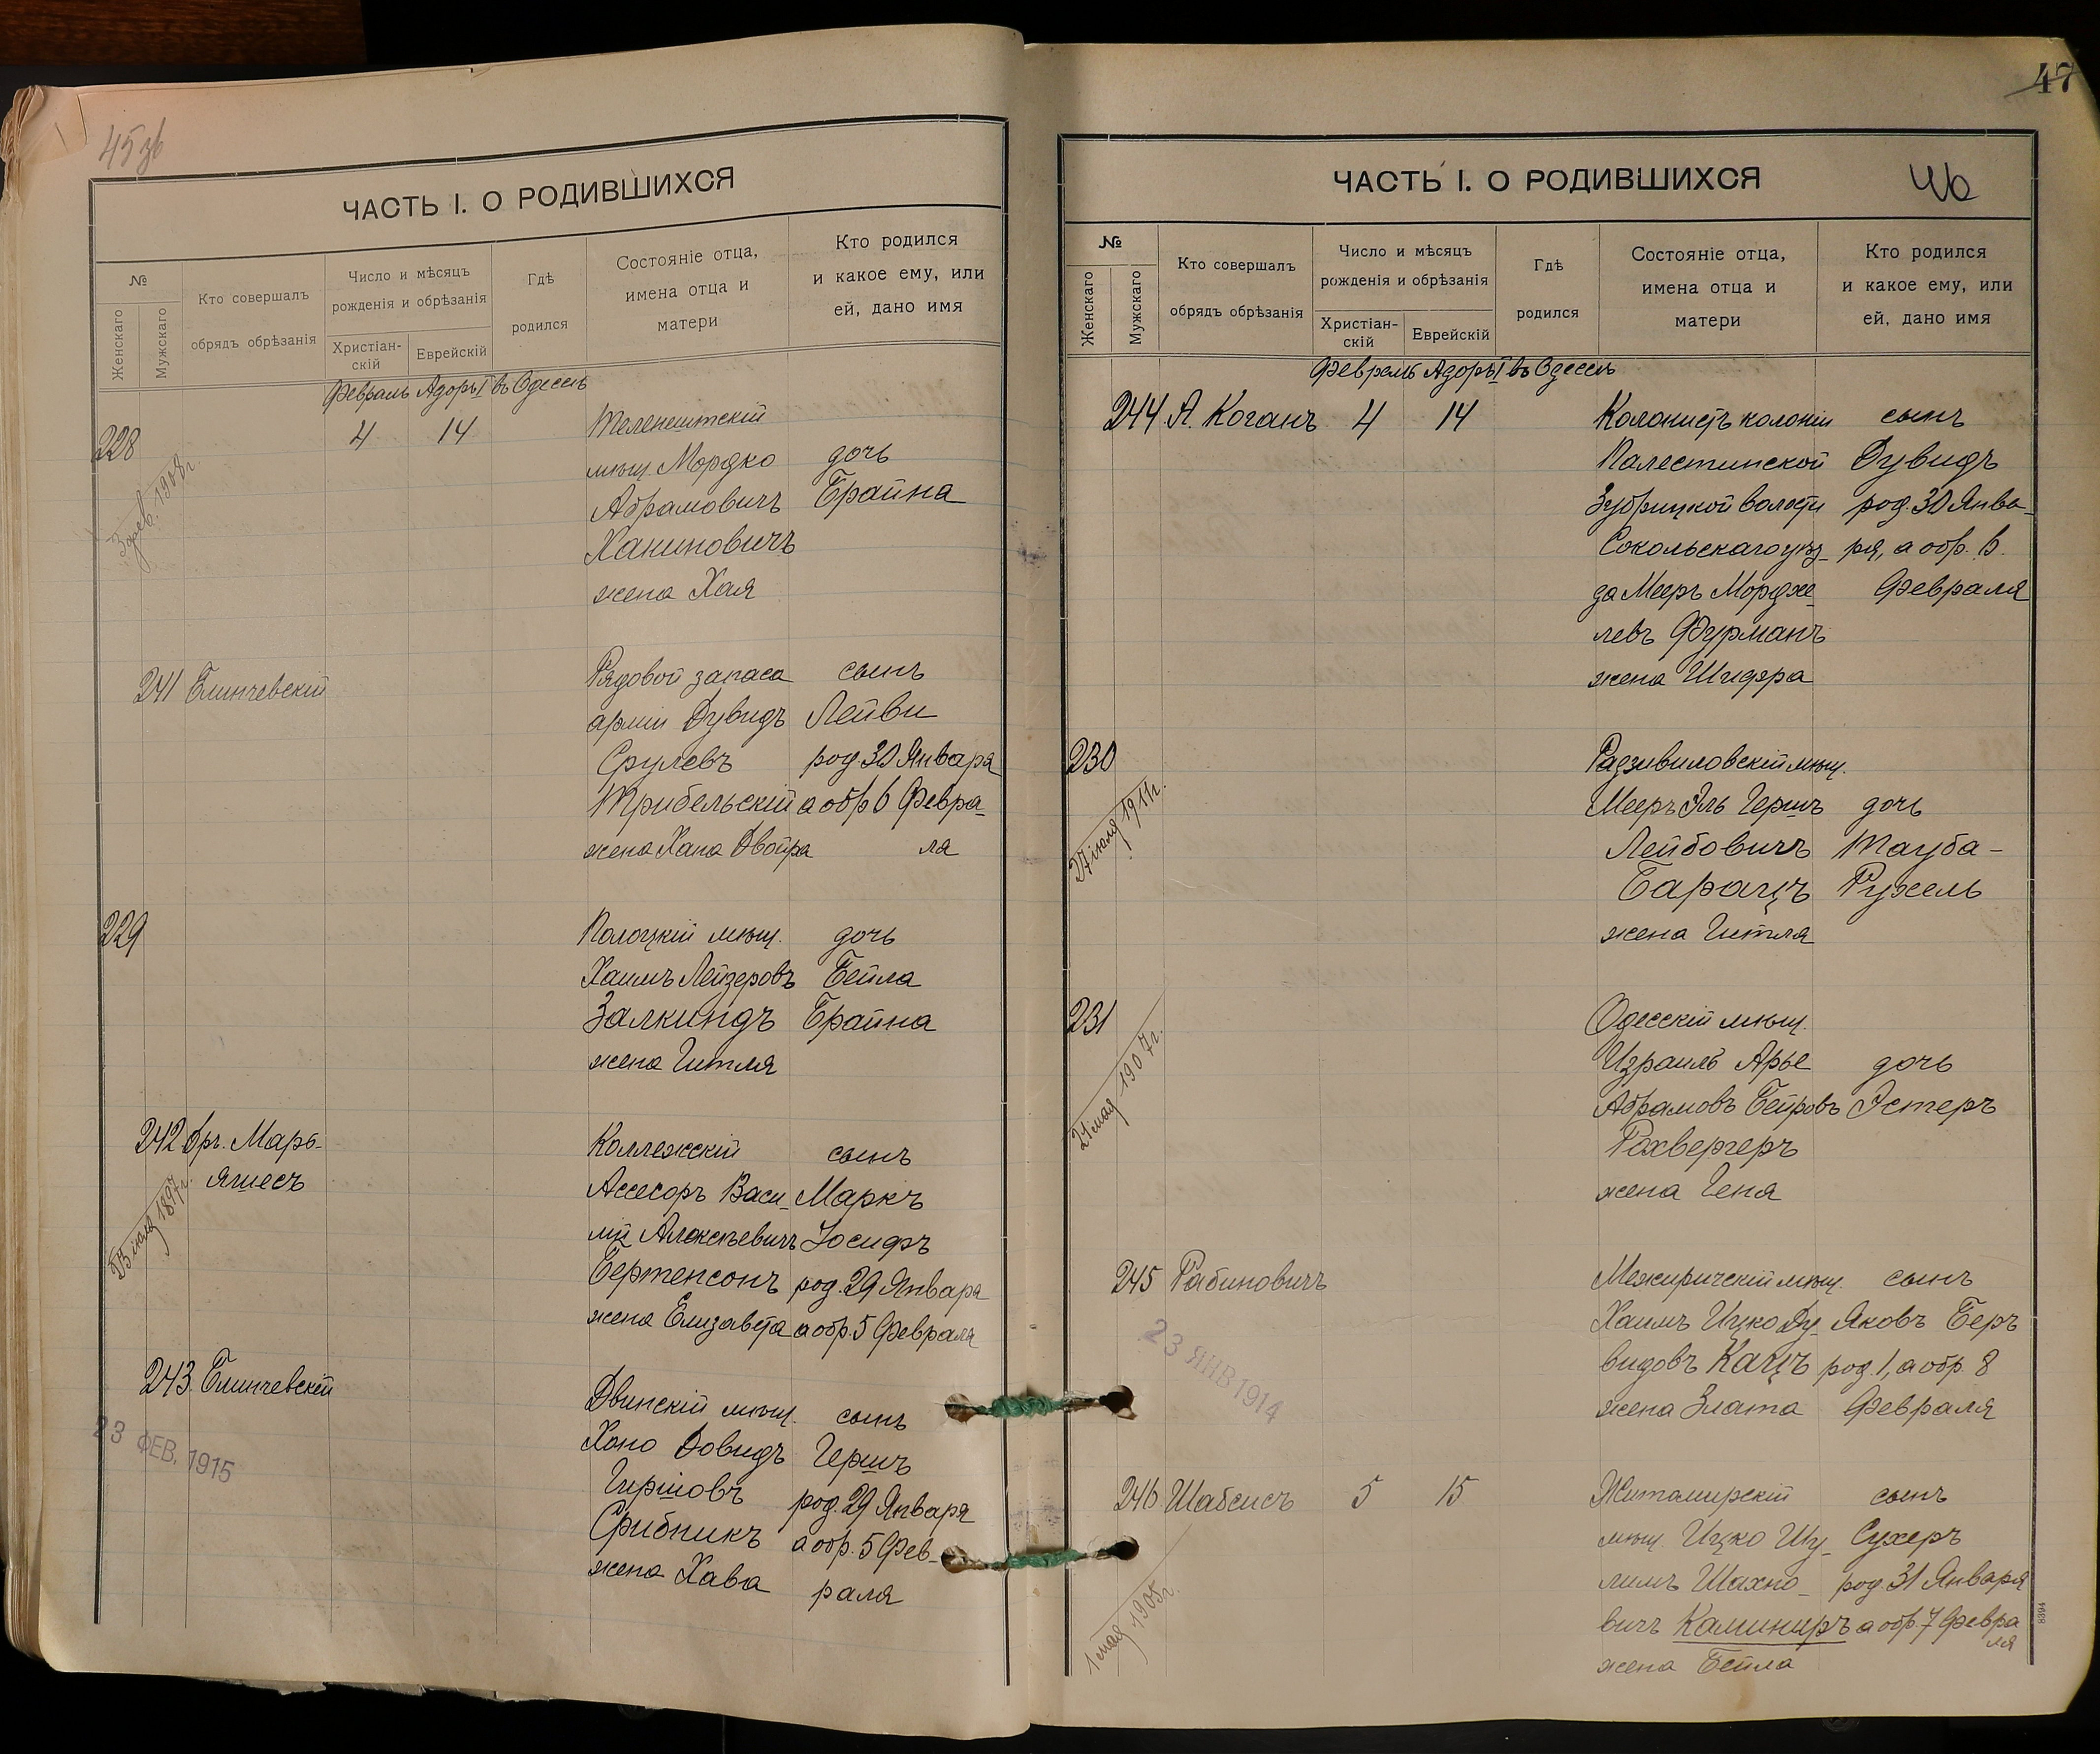 45 зв
ЧАСТЬ I. О РОДИВШИХСЯ
№
Женскаго
Мужскаго
Кто совершалъ
обрядъ обрѣзанія
Число и мѣсяцъ
рожденія и обрѣзанія
Христіан-
скій
Еврейскій
Гдѣ
родился
Состояніе отца,
имена отца и
матери
Кто родился
и какое ему, или
ей, дано имя
Февраль Адоръ I въ Одессѣ
228 4 14 Теленештскій
мѣщ. Мордко дочь
Абрамовичъ Брайна
Ханиновичъ
жена Хая
1908 г.
241 Блинчевскій Рядовой запаса сынъ
арміи Дувидъ Лейви
Срулевъ род. 30 Января
Трибельскій а обр 6 Февра-
жена Хана Двойра ля
229 Полоцкій мѣщ. дочь
Хаимъ Лейзеровъ Бейла
Залкиндъ Брайна
жена Гитля
242 бръ. Марь- Коллежскій сынъ
яшесъ Ассесоръ Васи- Маркъ
лій Алексѣевичъ Іосифъ
Бертенсонъ род. 29 Января
жена Елизавета а обр. 5 Февраля
1897 г.
243 Блинчевскій Двинскій мѣщ. сынъ
Хоно Довидъ Гершъ
Гиршовъ род. 29 Января
Срибникъ а обр. 5 Фев-
жена Хава раля
23 ФЕВ. 1915
47
46
ЧАСТЬ I. О РОДИВШИХСЯ
№
Женскаго
Мужскаго
Кто совершалъ
обрядъ обрѣзанія
Число и мѣсяцъ
рожденія и обрѣзанія
Христіан-
скій
Еврейскій
Гдѣ
родился
Состояніе отца,
имена отца и
матери
Кто родился
и какое ему, или
ей, дано имя
Февраль Адоръ I въ Одессѣ
244 А. Коганъ 4 14 Колонистъ колоніи сынъ
Палестинской Дувидъ
Зубрицкой волости род. 30 Янва-
Сокольскаго уѣз- ря, а обр. 6.
да Мееръ Мордхе- Февраля
левъ Фурманъ
жена Шифра
230 Радзивиловскій мѣщ.
Мееръ Эль Гершъ дочь
Лейбовичъ Тауба-
Барацъ Рухель
жена Гитля
27 іюля 1911 г.
231 Одесскій мѣщ.
Израиль Арье дочь
Абрамовъ Беировъ Эстеръ
Рахвергеръ
жена Геня
21 мая 1907 г.
245 Рабиновичъ Межиричскій мѣщ. сынъ
Хаимъ Ицко Ду- Яковъ Беръ
видовъ Кацъ род. 1, а обр. 8
жена Злата Февраля
23 ЯНВ 1914
246 Шабсисъ 5 15 Житомирскій сынъ
мѣщ. Ицко Шу- Сухеръ
лимъ Шахно- род. 31 Января
вичъ Калиниръ а обр. 7 Февра
ля
жена Бейла
1 мая 1905 г.
8394